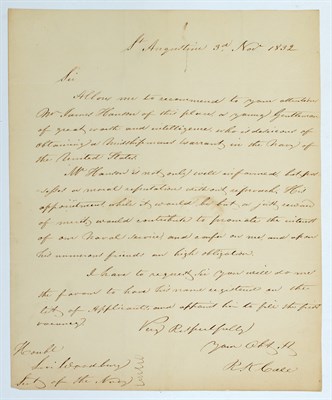 St Augustine 3rd Novr 1832
Sir
Allow me to recommend to your attention
Mr James Hanson of this place a young Gentleman
of great worth and intelligence who is desirous of
obtaining a Midshipmans warrant in the Navy of
the United States.
Mr Hanson is not only well informed, but pos-
sesses a moral reputation without reproach. His
appointment while it would be but a just reward
of merit, would contribute to promote the interest
of our Naval service and confer on me and upon
his numerous friends an high obligation.
I have to request, Sir you will do me
the favour to have his name registered on the
list of Applicants and appoint him to fill the first
vacancy
Very Respectfully
Your Obt St
R K Call
Honbl
Levi Woodbury
Secty of the Navy